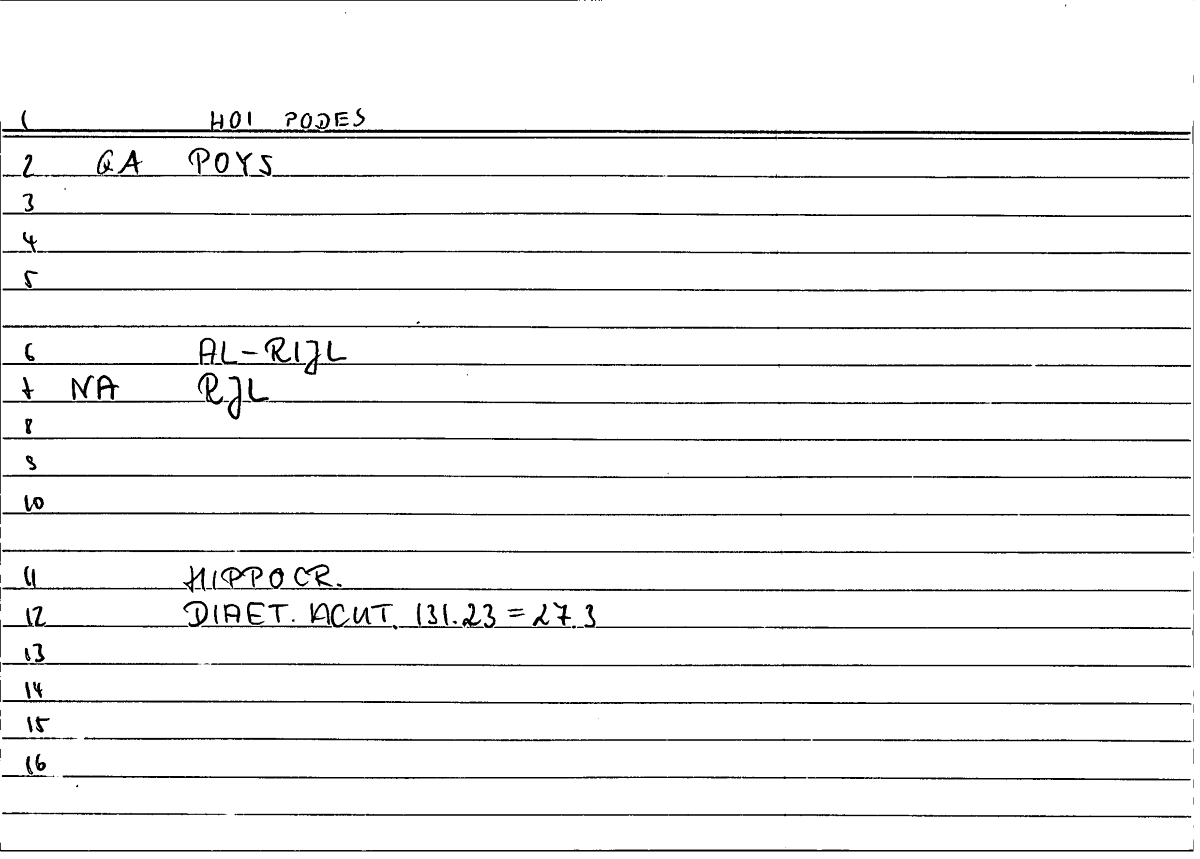 1 HOI PODES
2 QA POYS
3
4
5
6 AL-RIJL
7 NA RJL
8
9
10
11 HIPPOCR.
12 DIAET. ACUT. 131.23 = 27.3
13
14
15
16